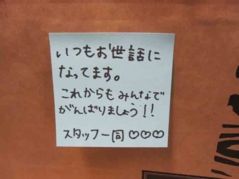 いつもお世話に
なってます。
これからもみんなで
がんばりましょう!!
スタッフ一同♡♡♡